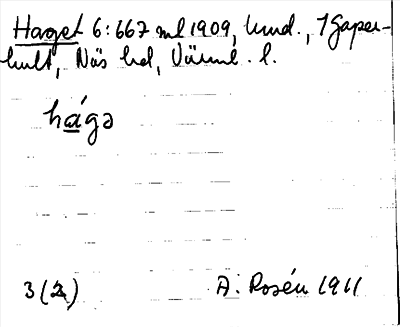 Haget 6:667 ml 1909, hmd., 7 Gaper-
hult, Näs hd, Värml. l.
hágə
3(2) A. Rosén 1911